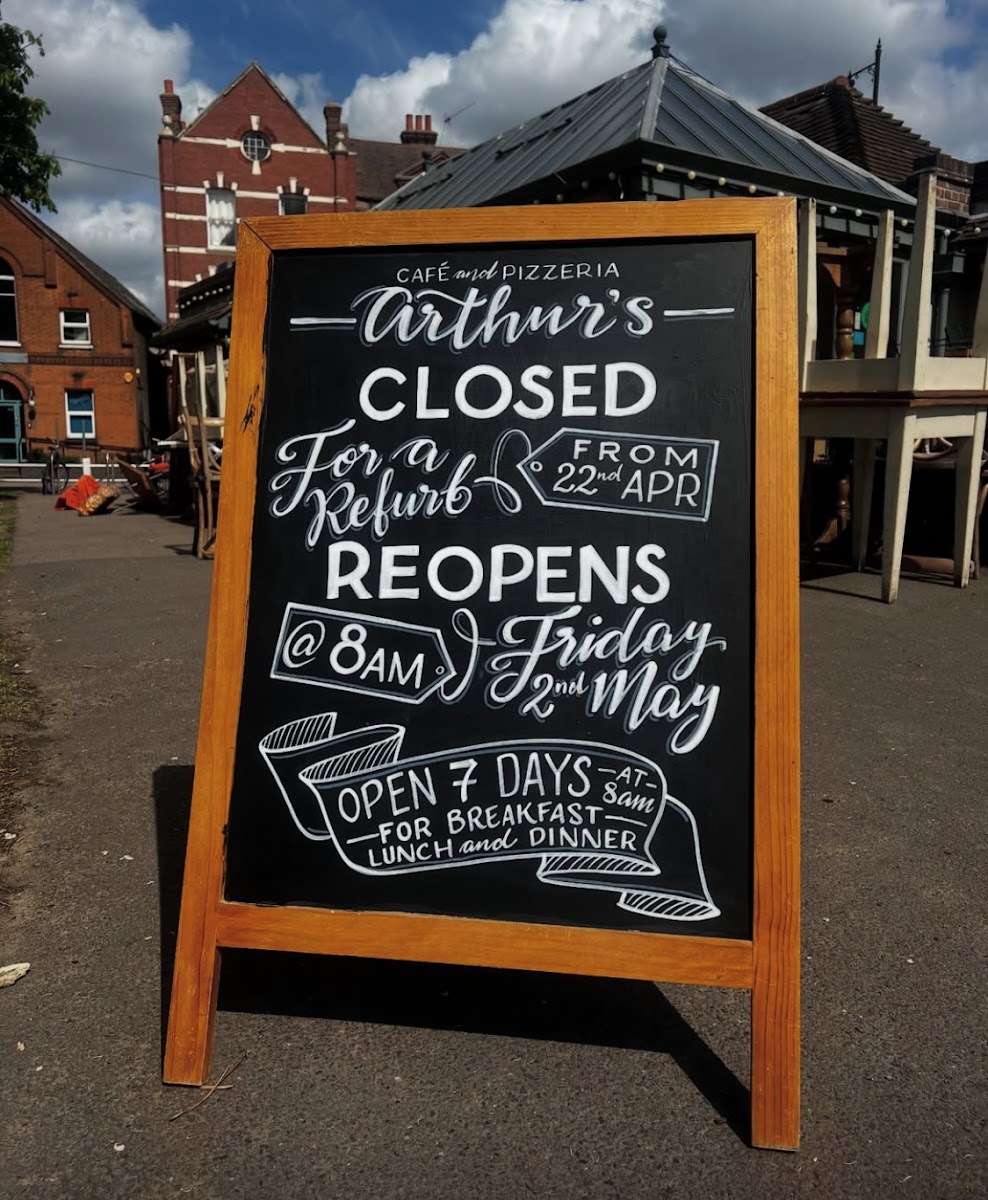 CAFÉ and PIZZERIA
arthur's
CLOSED
For a
Refurb
FROM
22nd APR
REOPENS
@ 8AM
Friday
2nd May
OPEN 7 DAYS -AT-
8am
-FOR BREAKFAST-
LUNCH and DINNER